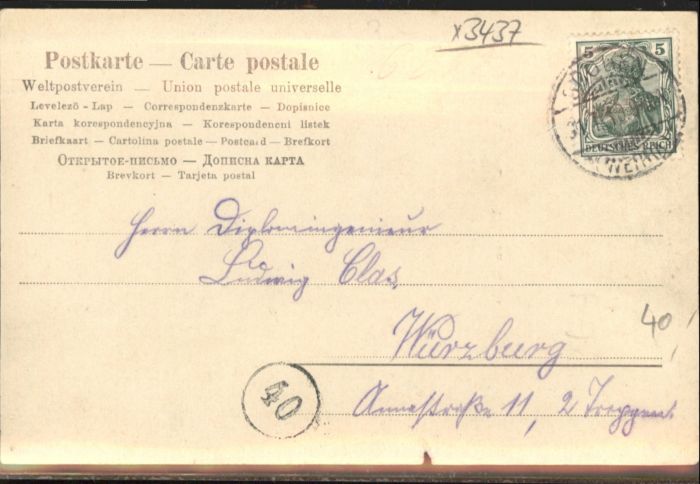 x3437
Postkarte — Carte postale
Weltpostverein — Union postale universelle
Levelező - Lap — Correspondenzkarte — Dopisnice
Karta korespondencyjna — Korespondencni listek
Briefkaart — Cartolina postale — Postcard — Brefkort
Открытое-письмо — Дописна карта
Brevkort — Tarjeta postal
5 5
DEUTSCHES REICH
Herrn Diplomingenieur
Ludwig Clas
Würzburg
40
Annastraße 11, 2 Treppen
40